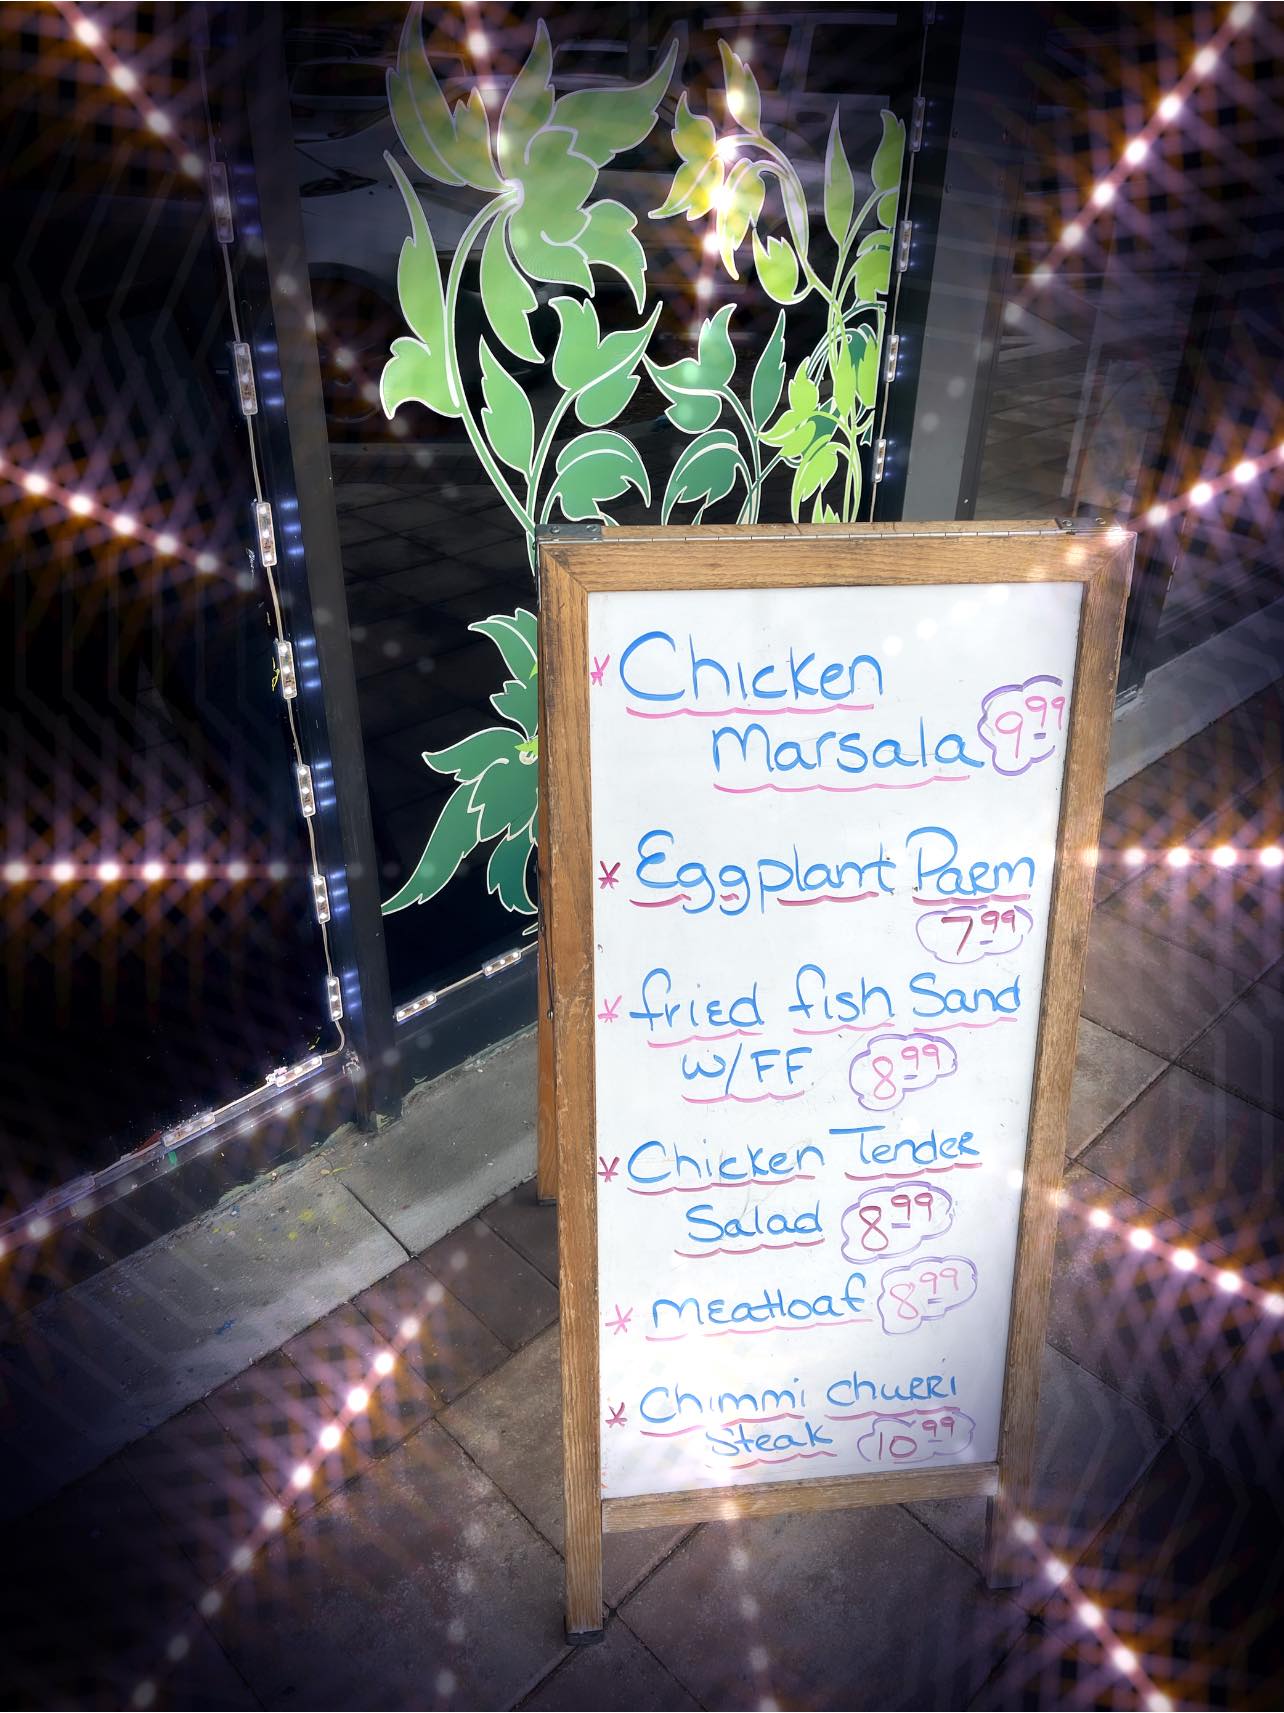 * Chicken
Marsala 9.99
* Eggplant Parm
7.99
* fried fish Sand
w/FF 8.99
* Chicken Tender
Salad 8.99
* Meatloaf 8.99
* Chimmi churri
Steak 10.99